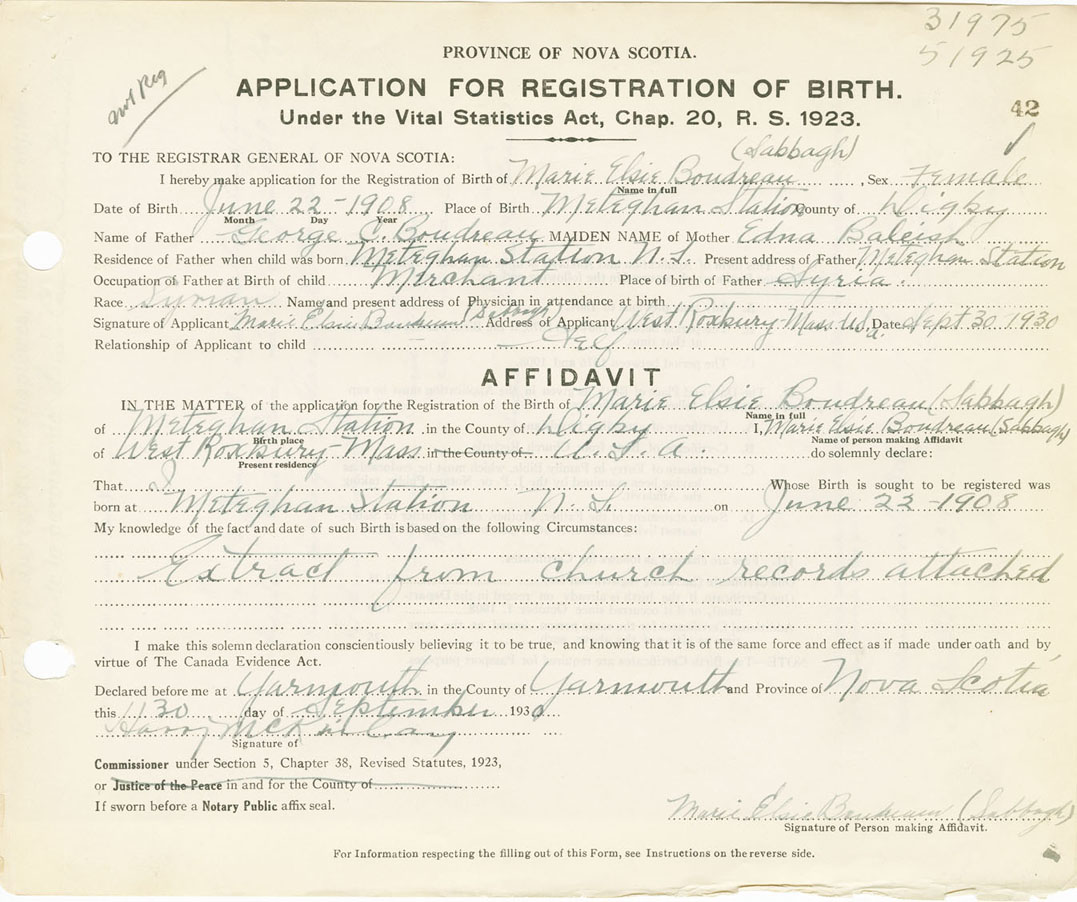 31975
51925
PROVINCE OF NOVA SCOTIA.
APPLICATION FOR REGISTRATION OF BIRTH.
42
Under the Vital Statistics Act, Chap. 20, R. S. 1923.
(Sabbagh)
TO THE REGISTRAR GENERAL OF NOVA SCOTIA:
I hereby make application for the Registration of Birth of Marie Elsie Boudreau, Sex Female
Name in full
Date of Birth June 22 - 1908 Place of Birth Meteghan Station County of Digby
Month Day Year
Name of Father George C. Boudreau MAIDEN NAME of Mother Edna Baleish
Residence of Father when child was born Meteghan Station N.S. Present address of Father Meteghan Station
Occupation of Father at Birth of child Merchant Place of birth of Father Syria.
Race Syrian Name and present address of Physician in attendance at birth
Signature of Applicant Marie Elsie Boudreau (Sabbagh) Address of Applicant West Roxbury Mass Date Sept 30 1930
Relationship of Applicant to child Self
AFFIDAVIT
IN THE MATTER of the application for the Registration of the Birth of Marie Elsie Boudreau (Sabbagh)
Name in full
of Meteghan Station in the County of Digby I, Marie Elsie Boudreau (Sabbagh)
Birth place Name of person making Affidavit
of West Roxbury - Mass. in the County of U.S.A. do solemnly declare:
Present residence
That I Whose Birth is sought to be registered was
born at Meteghan Station N.S. on June 22 - 1908
My knowledge of the fact and date of such Birth is based on the following Circumstances:
Extract from church records attached
I make this solemn declaration conscientiously believing it to be true, and knowing that it is of the same force and effect as if made under oath and by
virtue of The Canada Evidence Act.
Declared before me at Yarmouth in the County of Yarmouth and Province of Nova Scotia
this 30 day of September 1930
Harry
Signature of
Commissioner under Section 5, Chapter 38, Revised Statutes, 1923,
or Justice of the Peace in and for the County of
If sworn before a Notary Public affix seal.
Marie Elsie Boudreau (Sabbagh)
Signature of Person making Affidavit.
For Information respecting the filling out of this Form, see Instructions on the reverse side.